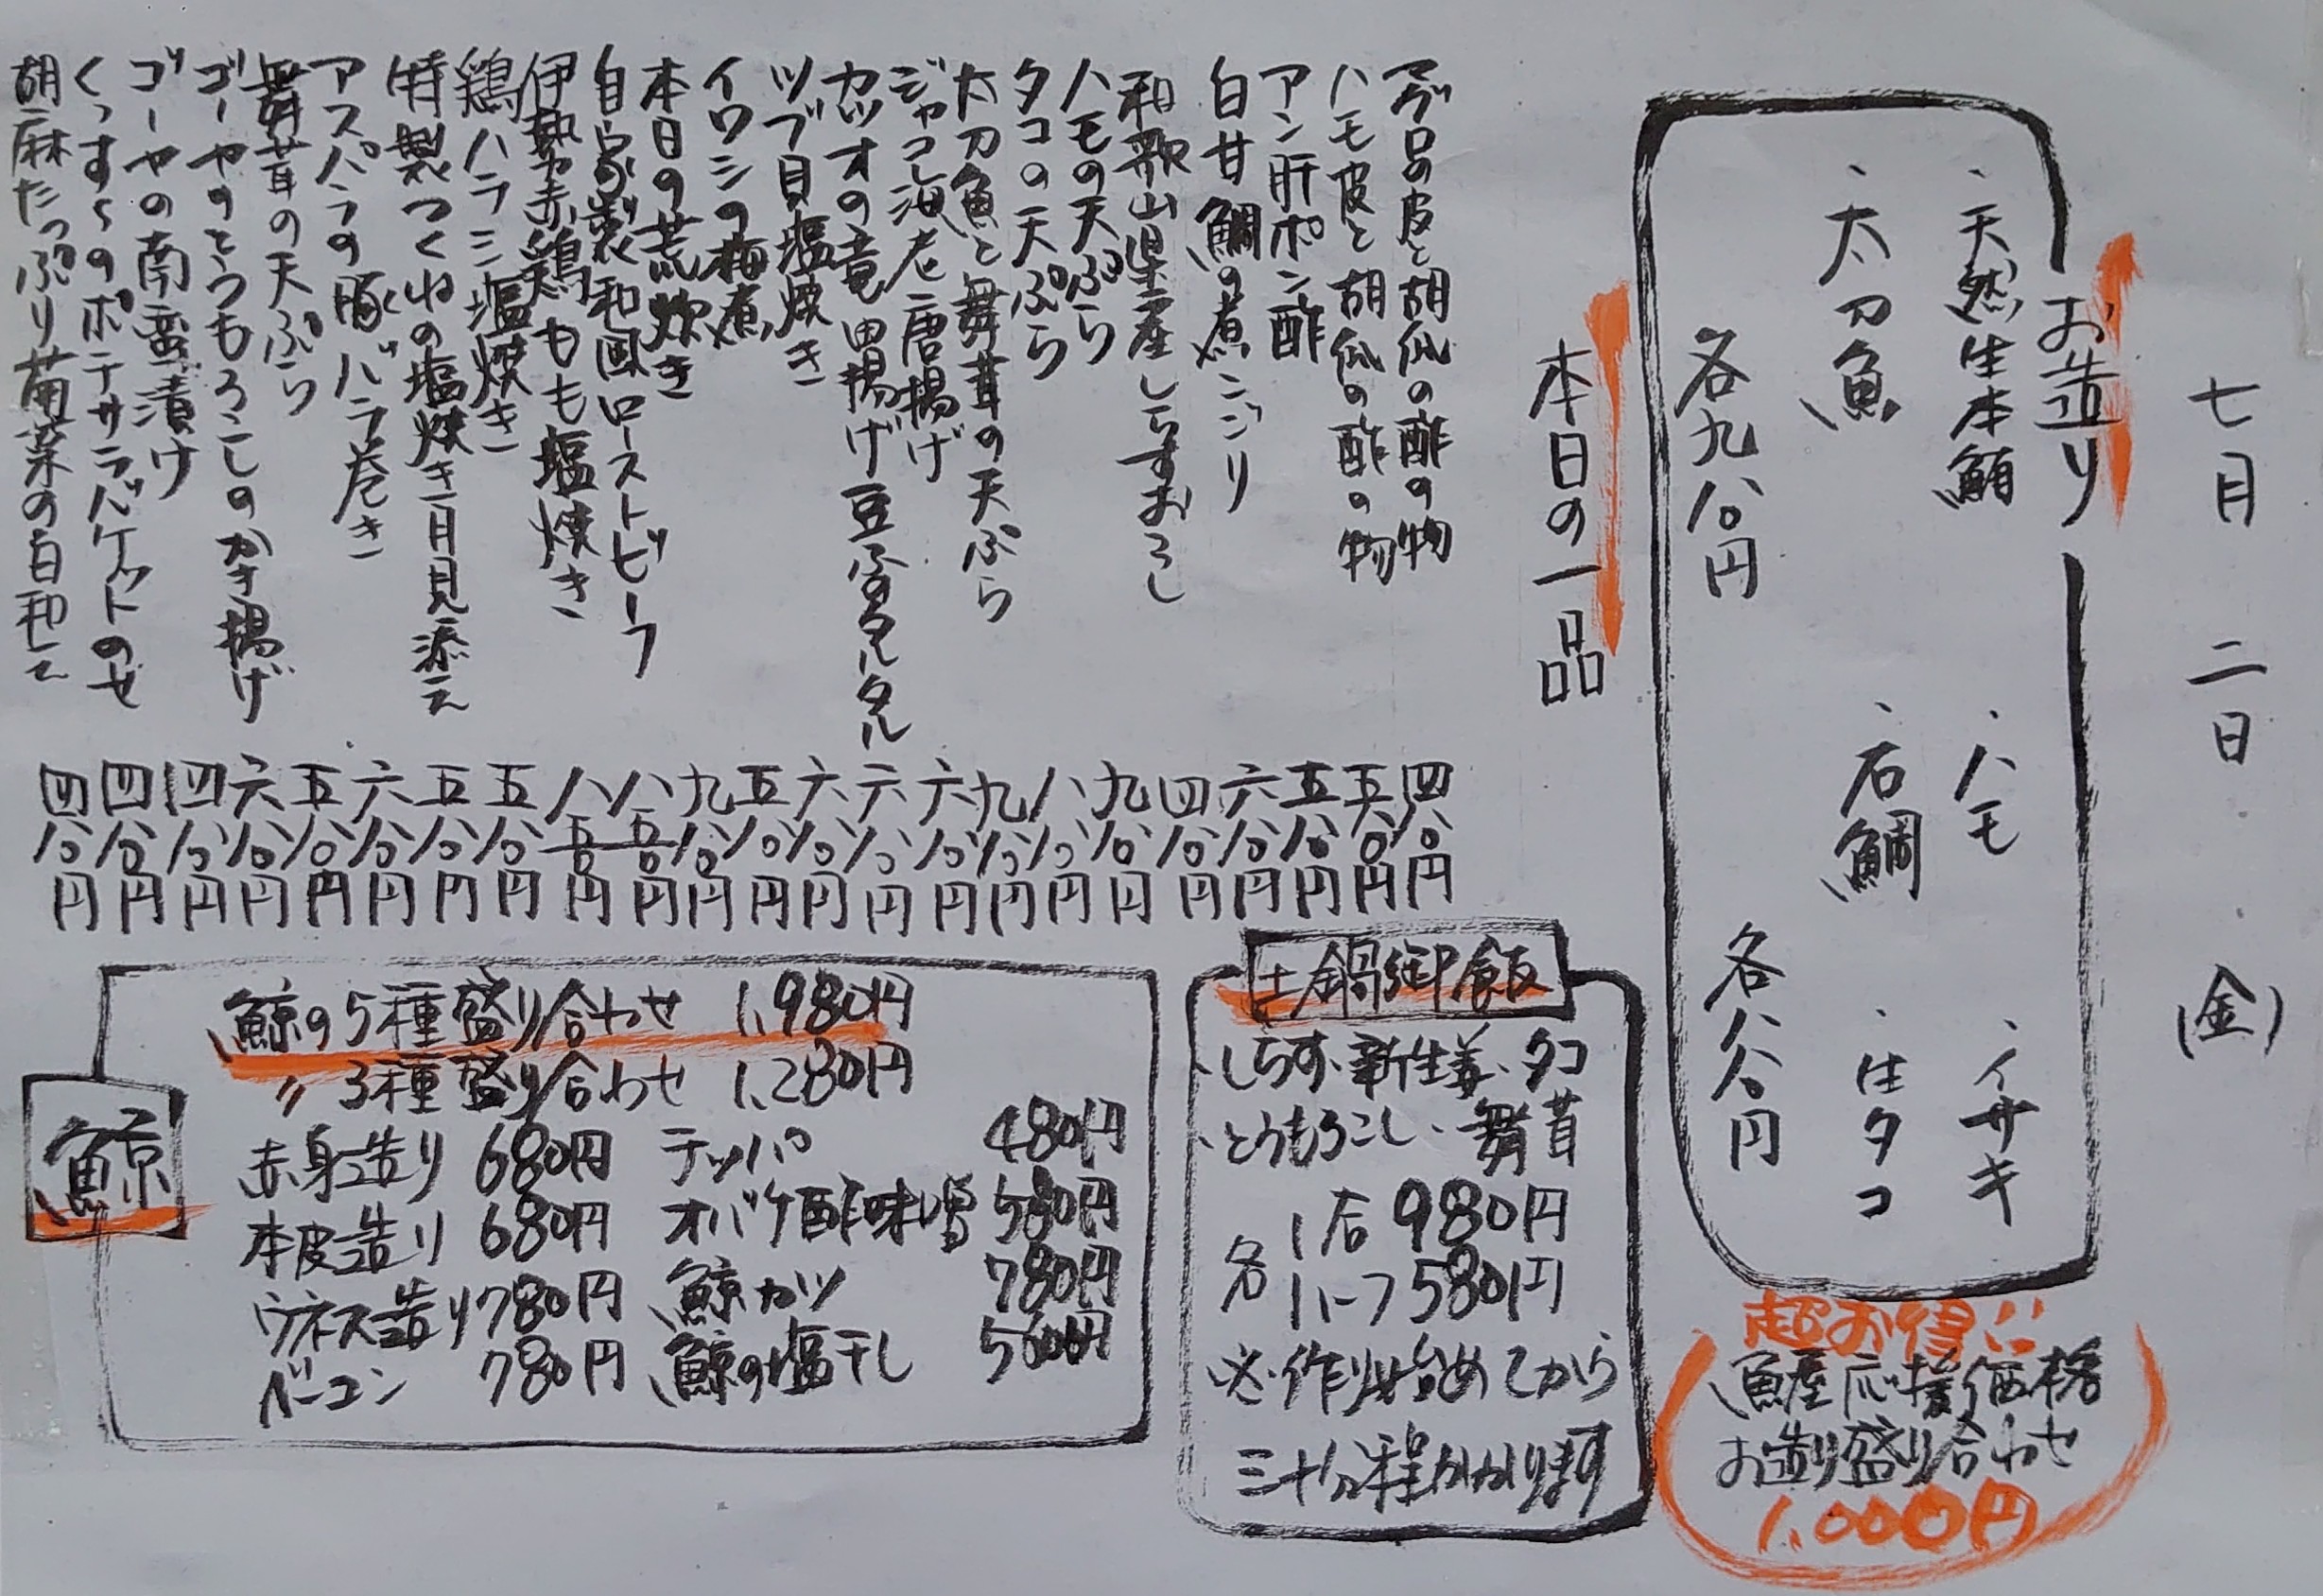 七月二日(金)
お造り
・天然生本鮪 ・ハモ ・イサキ
・太刀魚 ・石鯛 ・生タコ
各九八〇円 各八八〇円
超お得!!
魚屋応援価格
お造り盛り合わせ
1,000円
本日の一品
マグロの皮と胡瓜の酢の物 四八〇円
ハモ皮と胡瓜の酢の物 五八〇円
アン肝ポン酢 五八〇円
白甘鯛の煮こごり 六八〇円
和歌山県産しらすおろし 四八〇円
ハモの天ぷら 九八〇円
タコの天ぷら 八八〇円
太刀魚と舞茸の天ぷら 九八〇円
ジャコし海老唐揚げ 六八〇円
カツオの竜田揚げ豆ふタルタル 六八〇円
ツブ貝塩焼き 六八〇円
イワシの梅煮 五八〇円
本日の荒炊き 九八〇円
自家製和風ローストビーフ 八五〇円
伊勢赤鶏もも塩焼き 八五〇円
鶏ハラミ塩焼き 五八〇円
特製つくねの塩焼き月見添え 五八〇円
アスパラの豚バラ巻き 六八〇円
舞茸の天ぷら 五八〇円
ゴーヤのとうもろこしのかき揚げ 六八〇円
ゴーヤの南蛮漬け 四八〇円
くっすぅのポテサラバケットのせ 四八〇円
胡麻たっぷり菊菜の白和え 四八〇円
土鍋御飯
・しらす・新生姜・タコ
・とうもろこし・舞茸
各 1合 980円
1ハーフ 580円
※作り始めてから
三十分程かかります
鯨
鯨の5種盛り合わせ 1,980円
〃 3種盛り合わせ 1,280円
赤身造り 680円 テッパ 480円
本皮造り 680円 オバケ酢味噌 580円
ウネス造り 780円 鯨カツ 780円
ベーコン 780円 鯨の塩干し 500円